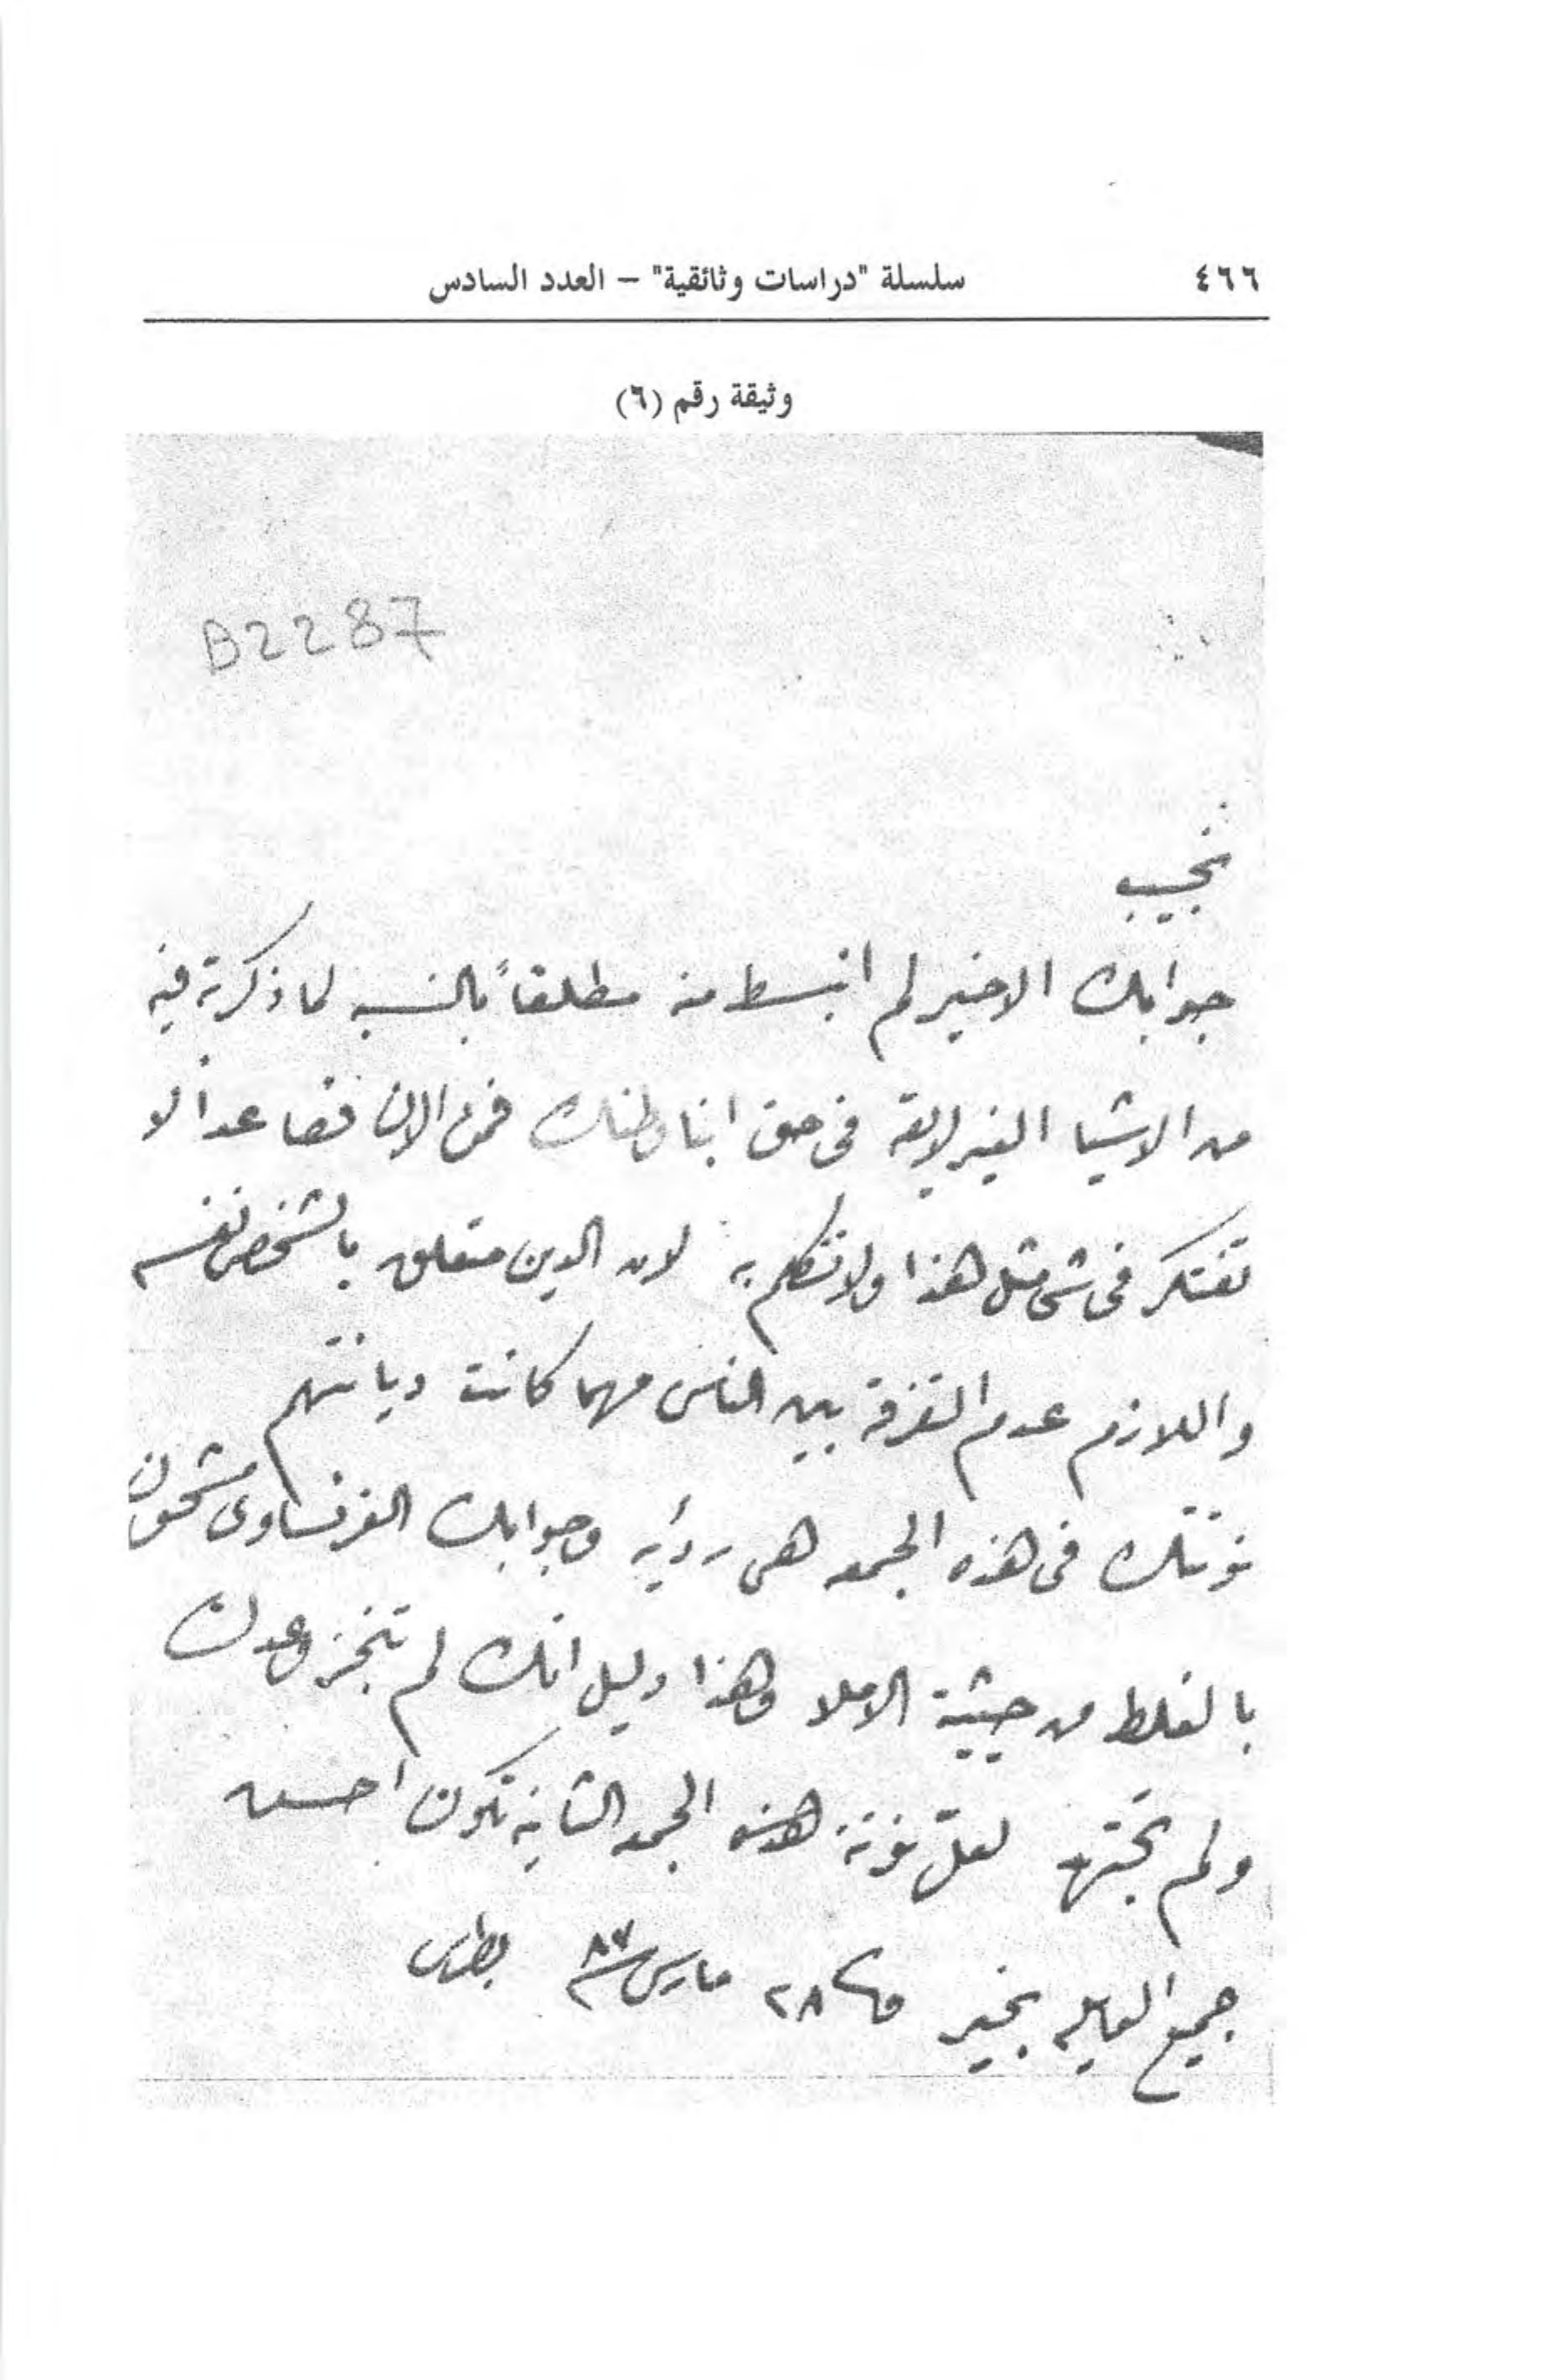 ٤٦٦ سلسلة "دراسات وثائقية" – العدد السادس
وثيقة رقم (٦)
B2287
نجيب
جوابك الاخير لم انبسط منه مطلقاً بالنسبه لما ذكرته فيه
من الاشيا الغير لايقة فى حق ابنا وطنك فمن الان فصاعداً لا
تفتكر فى شى مثل هذا ولا تتكلم به لان الدين متعلق بالشخص نفسه
واللازم عدم التفرقة بين الناس مهما كانت ديانتهم
نوتتك فى هذه الجمعه هى رديه وجوابك الفرنساوى مشحون
بالغلط من حيثية الاملا وهذا دليل انك لم تنجز وعدك
ولم تجتهد لعلّ نوتة هذه الجمعه الثانيه تكون احسن
جميع العايله بخير فى ٢٨ مارس سنة ٨٧ بطرس